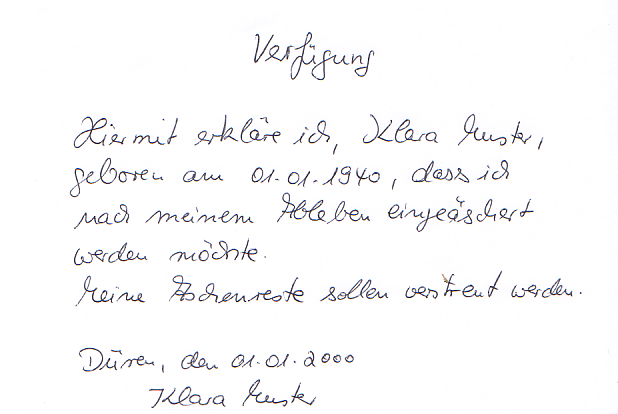 Verfügung
Hiermit erkläre ich, Klara Muster,
geboren am 01.01.1940, dass ich
nach meinem Ableben eingeäschert
werden möchte.
Meine Aschenreste sollen verstreut werden.
Düren, den 01.01.2000
Klara Muster